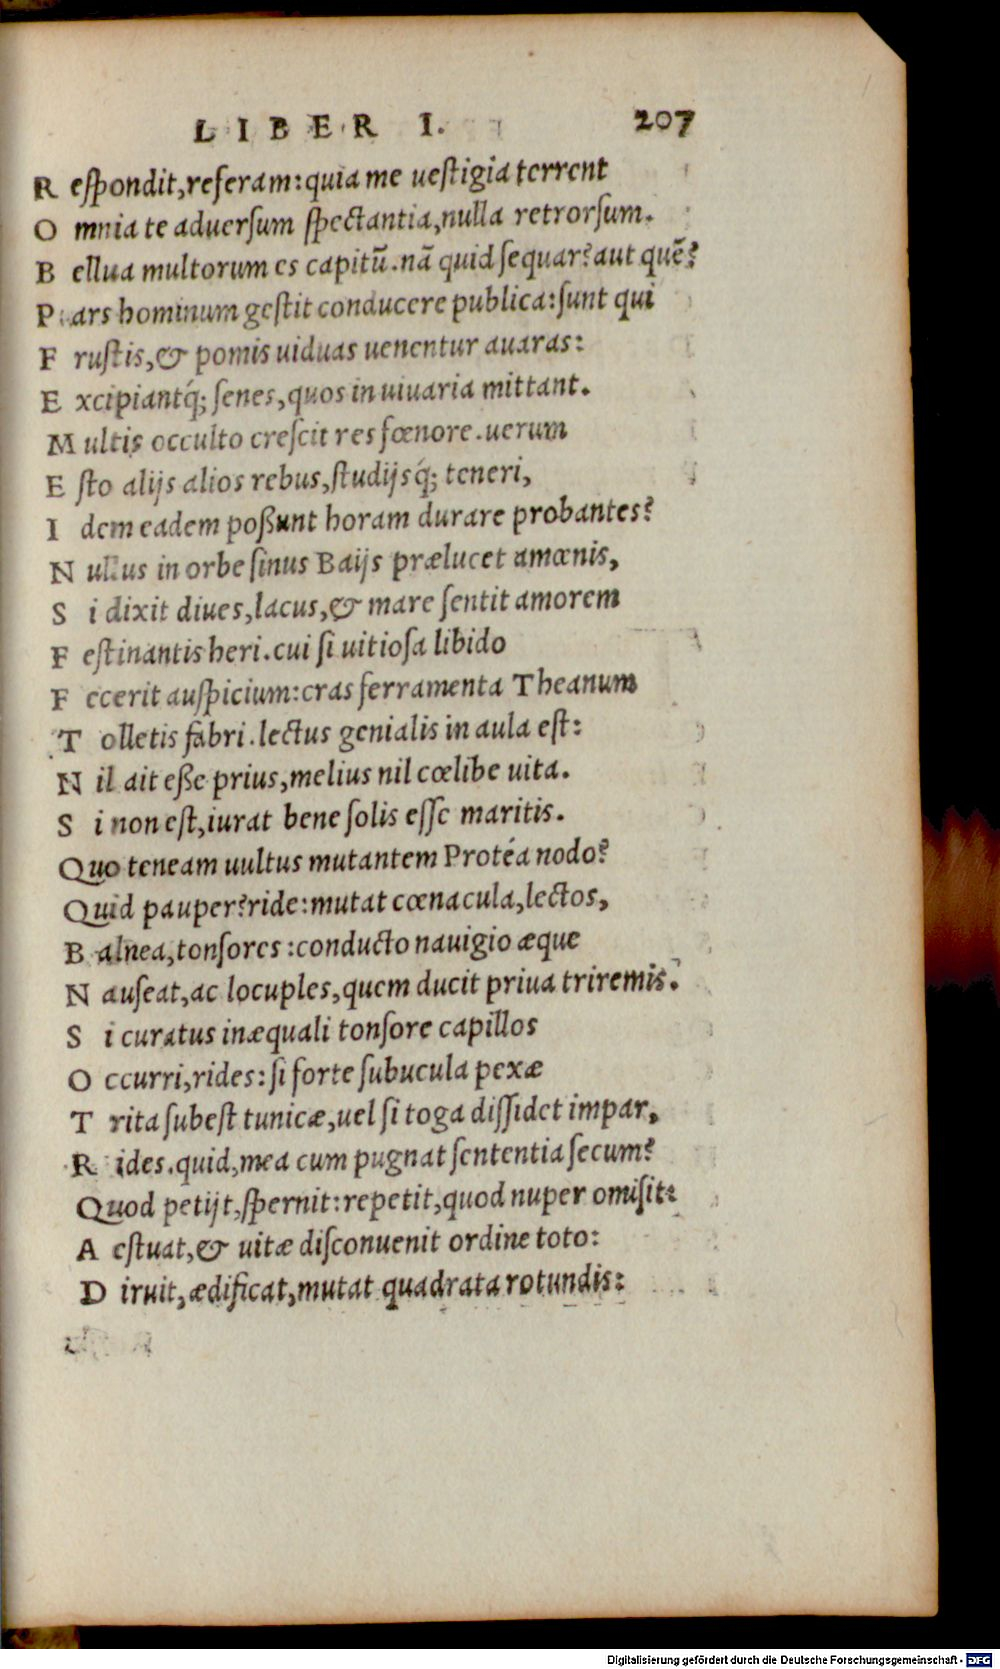 LIBER I. 207
R espondit, referam: quia me uestigia terrent
O mnia te aduersum spectantia, nulla retrorsum.
B ellua multorum es capitū. nā quid sequar? aut quē?
P ars hominum gestit conducere publica: sunt qui
F rustis, & pomis uiduas uenentur auaras:
E xcipiantq́; senes, quos in uiuaria mittant.
M ultis occulto crescit res fœnore. uerum
E sto alijs alios rebus, studijsq́; teneri,
I dem eadem possunt horam durare probantes?
N ullus in orbe sinus Baijs prælucet amœnis,
S i dixit diues, lacus, & mare sentit amorem
F estinantis heri. cui si uitiosa libido
F ecerit auspicium: cras ferramenta Theanum
T olletis fabri. lectus genialis in aula est:
N il ait esse prius, melius nil cœlibe uita.
S i non est, iurat bene solis esse maritis.
Quo teneam uultus mutantem Protéa nodo?
Quid pauper? ride: mutat cœnacula, lectos,
B alnea, tonsores: conducto nauigio æque
N auseat, ac locuples, quem ducit priua triremis.
S i curatus inæquali tonsore capillos
O ccurri, rides: si forte subucula pexæ
T rita subest tunicæ, uel si toga dissidet impar,
R ides. quid, mea cum pugnat sententia secum?
Quod petijt, spernit: repetit, quod nuper omisit:
A estuat, & uitæ disconuenit ordine toto:
D iruit, ædificat, mutat quadrata rotundis:
Digitalisierung gefördert durch die Deutsche Forschungsgemeinschaft - DFG